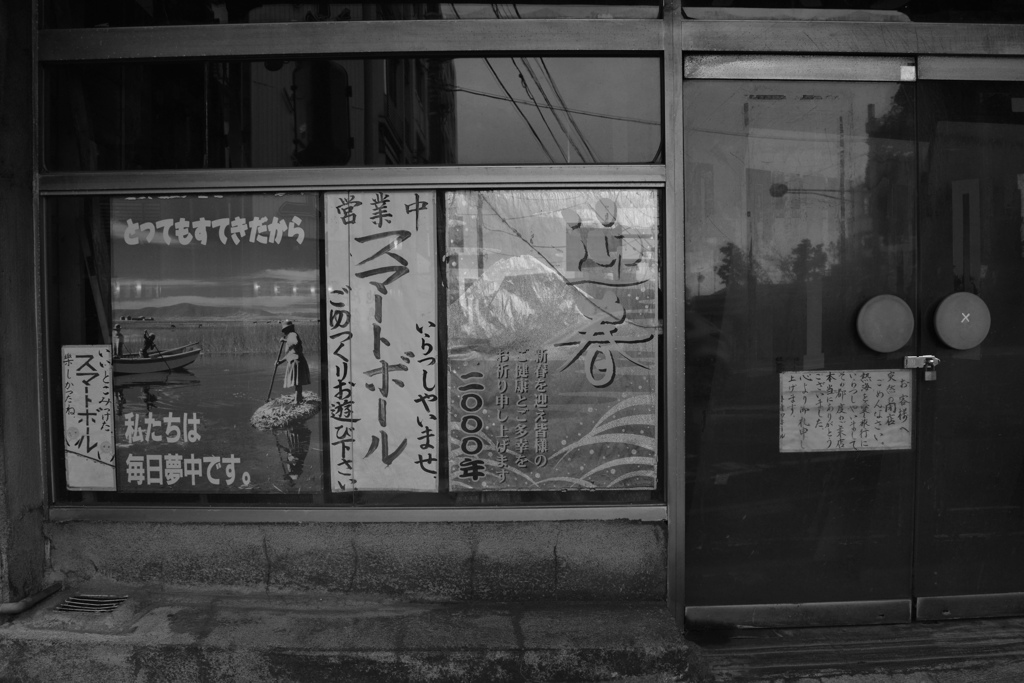 とってもすてきだから
私たちは
毎日夢中です。
いいとこみつけた
スマートボール
楽しかったね
営業中
いらつしやいませ
スマートボール
ごゆつくりお遊び下さい
迎春
新春を迎え皆様の
ご健康とご多幸を
お祈り申し上げます
二〇〇〇年
お客様へ
突然の閉店
ごめんなさい。
本当にありがとう
ございました。
心よりお礼申し
上げます。